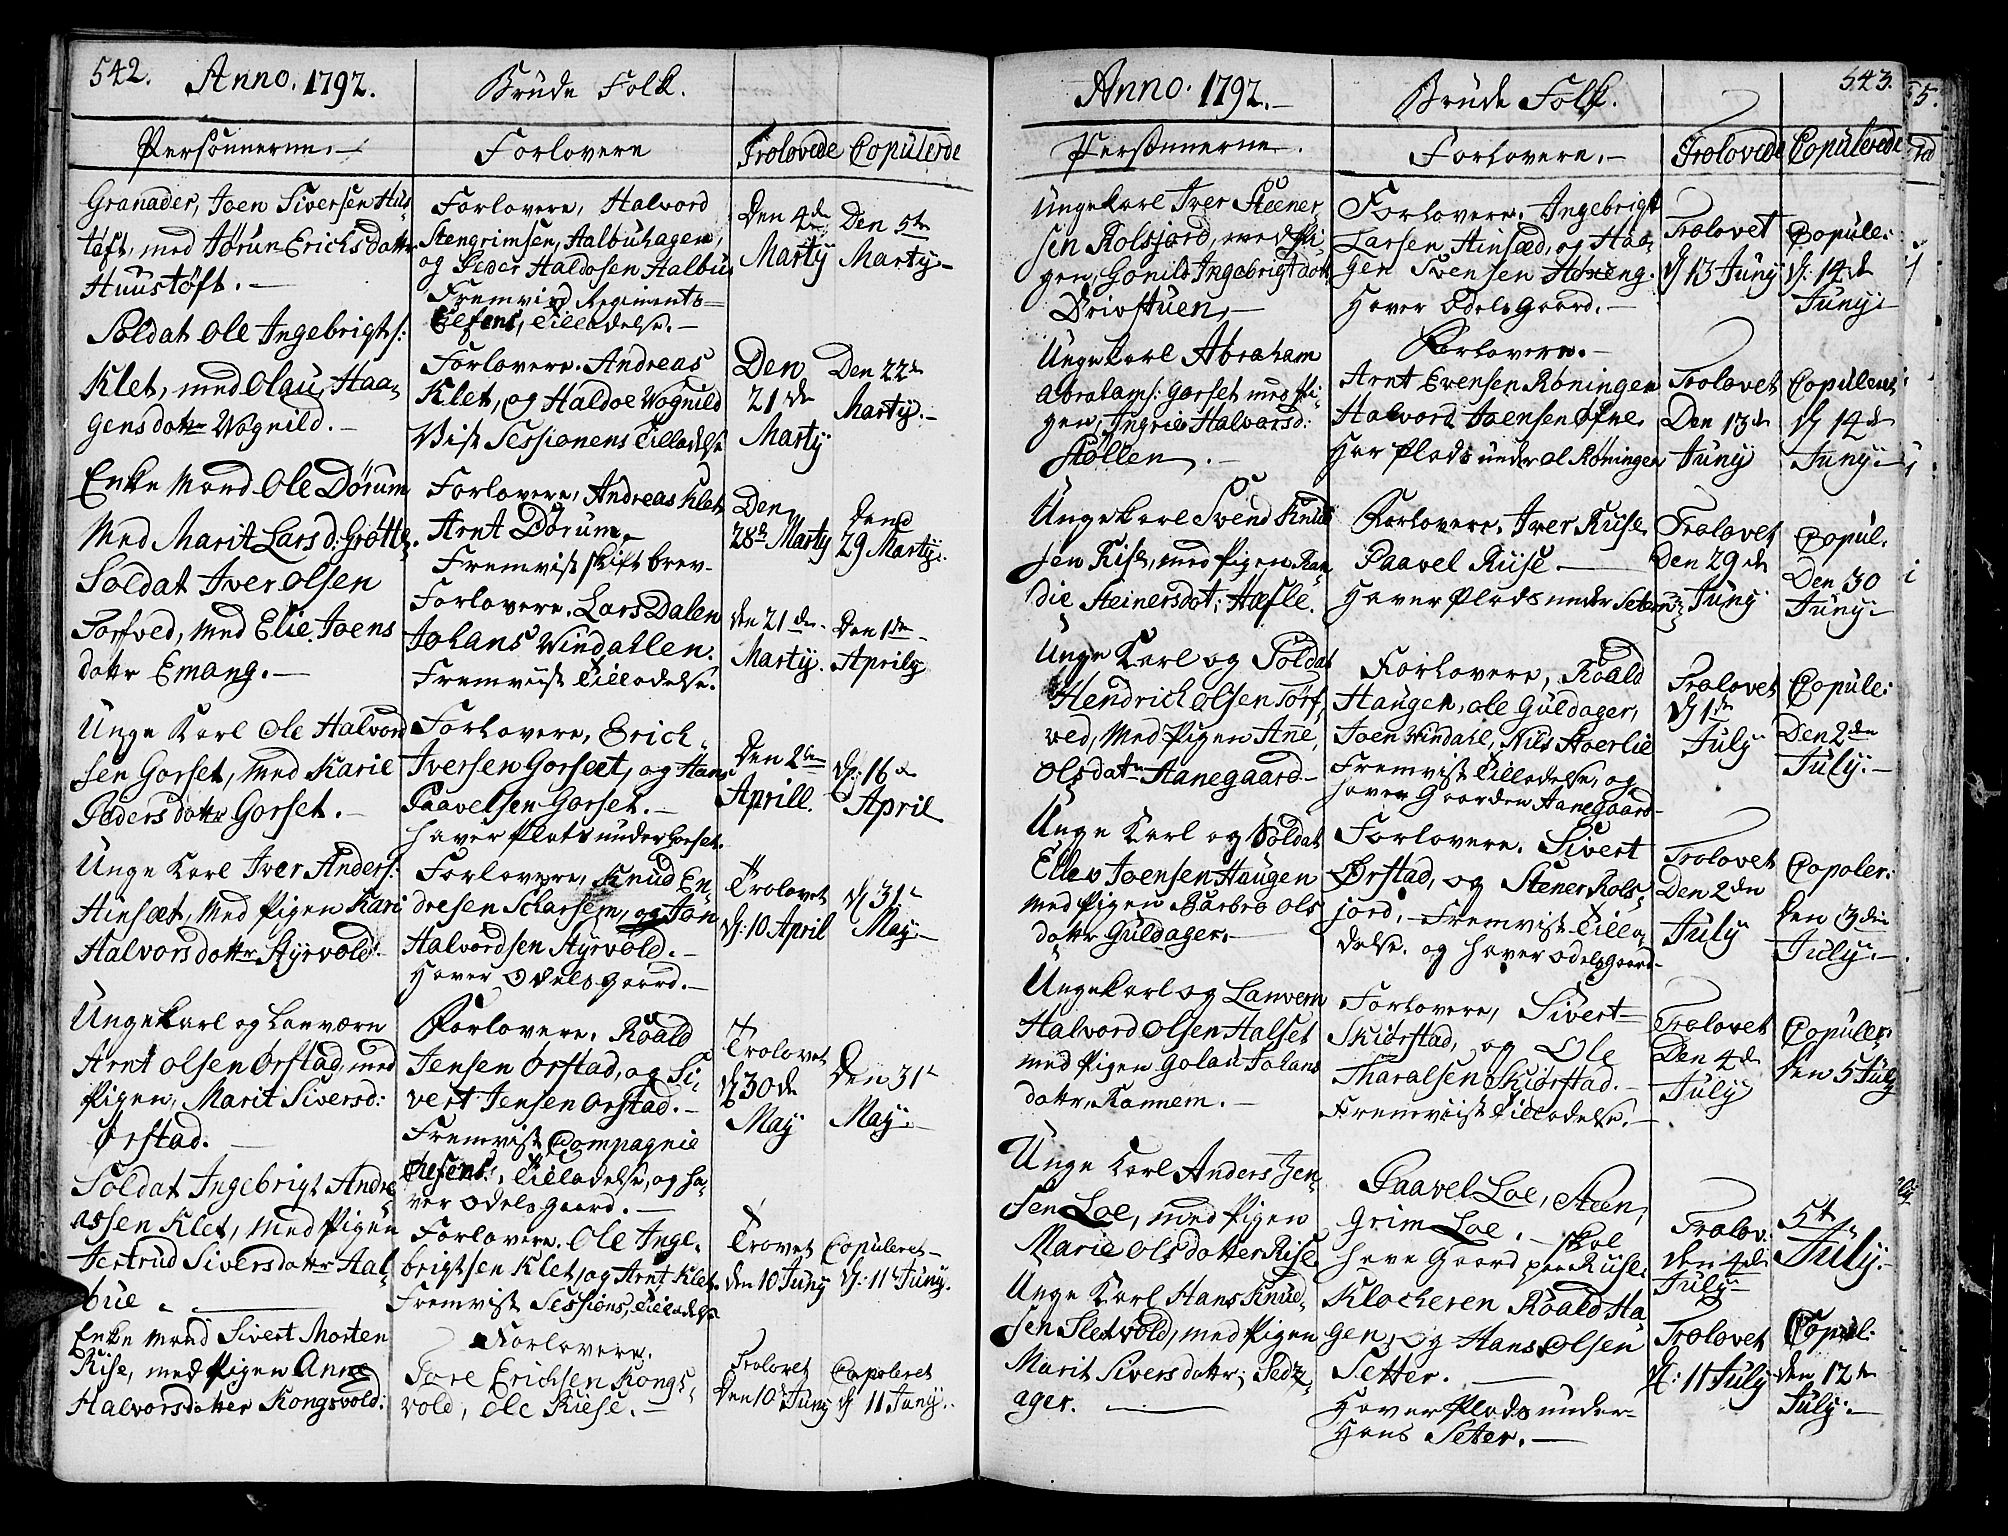 542. Anno. 1792. Brude Folk.
Personnerne. Forlovere Trolovede Copulerde
Granader, Joen Siversen Hus-
tøft, med Jørun Erichs dattr
Huustøft.
Forlovere, Halvord
Stengrimsen, Halbuhagen,
og Peder Haldosen Halbue
Fremvird Regiments-
Chefens, Tilladelse.
Den 4de
Marty
Den 5te
Marty
Soldat Ole Ingebrigts:
Klet, med Olau Haa-
gensdattr Vognild.
Forlovere. Andreas
Klet, og Haldoe Vognild
Vist Sessionens Tilladelse
Den
21de
Marty
Den 22de
Marty.
Enke Mand Ole Dørum
Med Marit Lars d: Grøtte.
Forlovere, Andreas Klet
Arnt Dørum,
Fremvist skiftbrev
Den
28de Marty
Den
29 Marty.
Soldat Iver Olsen
Torfved, med Elie Joens
dattr Emang.
Forlovere. Lars Dalen
Johans Vindahlen.
Fremviist Tilladelse.
den 21de
Marty.
Den 1de
Aprily
Unge Karl Ole Halvord
sen Gorset, Med Karie
Peders dattr Gorset.
Forlovere, Erich
Iversen Gorseet, og Hans
Paavelsen Gorset.
haver Plats under Gorset.
Den 2den
Aprill.
d: 16de
April
Unge Karl Iver Anders:
Hinsæt, Med Pigen Kari
Halvorsdattr Styrvold.
Forlovere, Knud En-
dresen Scharsem, og Jon
Halvordsen Styrvold.
Haver Odelsgaard.
Trolovet
d: 10 April
d 31te
May.
Ungekarl og Lanværn
Arnt Olsen Ørstad, med
Pigen, Marit Siversd:
Ørstad.
Forlovere. Roald
Jensen Ørstad, og Si-
vert Jensen Ørstad.
Fremvist Compagnie
Chefens Tilladelse, og ha-
ver Odelsgaard.
Trolovet
d 30de
May
Den 31te
May.
Soldat Ingebrigt Andre
assen Klet, Med Pigen
Jertrud Siversdattr Hal-
bue.
Forlovere. Ole Inge-
brigtsen Klet, og Arnt Klet.
Fremvist Sessions Tilladelse
Trovet
den 10 Juny
Copuleret
d: 11te Juny.
Enke Mand Sivert Morten
Rise, med Pigen Anne
Halvorsdatter Kongsvold.
Forlovere.
Tore Erichsen Kongs-
vold, Ole Riese.
Trolovet
Den 10de Juny
Copoleret
d 11 Juny.
Anno. 1792. Brude Folk. 543.
Personnerne. Forlovere. Trolovede Copulerede
Ungekarl Iver Steener-
sen Rolsjord, med Pi-
gen, Gonild Ingebrigtdattr
Drivstuen,
Forlovere, Ingebrigt
Larsen, Hinsæd, og Haa-
gen Svensen Høreng.
Haver Odels Gaard.
Trolovet
d 13 Juny
Copule:
d: 14de
Juny
Ungekarl Abraham
Abrahams: Gorset med Pi-
gen, Ingrid Halvorsd:
Støllen.
Forlovere.
Arnt Evensen Røningen
Halvord Joensen Øfne.
Har Plads under Ol Røningen
Trolovet
Den 13de
Juny
Copuleret
d 14de
Juny
Ungekarl Svend Knud
sen Rise, med Pigen Ran-
die Steinersdat: Hæfle.
Forlovere. Iver Ruse.
Paavel Riise.
Haver Plads under Seteren
Trolovet
Den 29de
Juny
Copul.
Den 30
Juny
Unge Karl og Soldat
Hendrich Olsen Torf-
ved, Med Pigen Anne,
Olsdatr Hanegaard
Forlovere, Roald
Haugen, Ole Guldager,
Joen Windahl, Nils Stoerlie
Fremvist Tilladelse, og
haver Gaarden Hanegaard
Trolovet
d 1de
July
Copule:
Den 2den
July.
Unge Karl og Soldat
Ellev Joensen Haugen
Med Pigen Barbro Ols
dattr Guldager.
Forlovere. Sivert
Ørstad, og Stener Rols-
jord. Fremvist Tilla-
delse. og haver Odelsgaard
Trolovet
Den 2den
July
Copoler:
Den 3die
July.
Ungekarl og Lanvern
Halvord Olsen Halset
med Pigen Golau Johans
dattr, Rannem.
Forlovere, Sivert
Skiørstad, og Ole
Tharalsen Skiørstad.
Fremviist Tilladelse.
Trolovet
Den 4de
July
Copuler:
den 5 July
Unge Karl Anders Jen-
sen Loe, med Pigen
Marie Olsdatter Rise.
Paavel Loe, Steen,
grim Loe. skal
have Gaard paa Riise.
Trolov.
den 4de
July
5te
July.
Unge Karl Hans Knud-
sen Sletvold, med Pigen
Marit Siversdattr,
ager.
Klockeren Roald Ha
gen, og Hans Olsen
Setter.
Haver Plads under
Hans Seter.
Trolovet
d: 11 July
Copul:
den 12te
July.